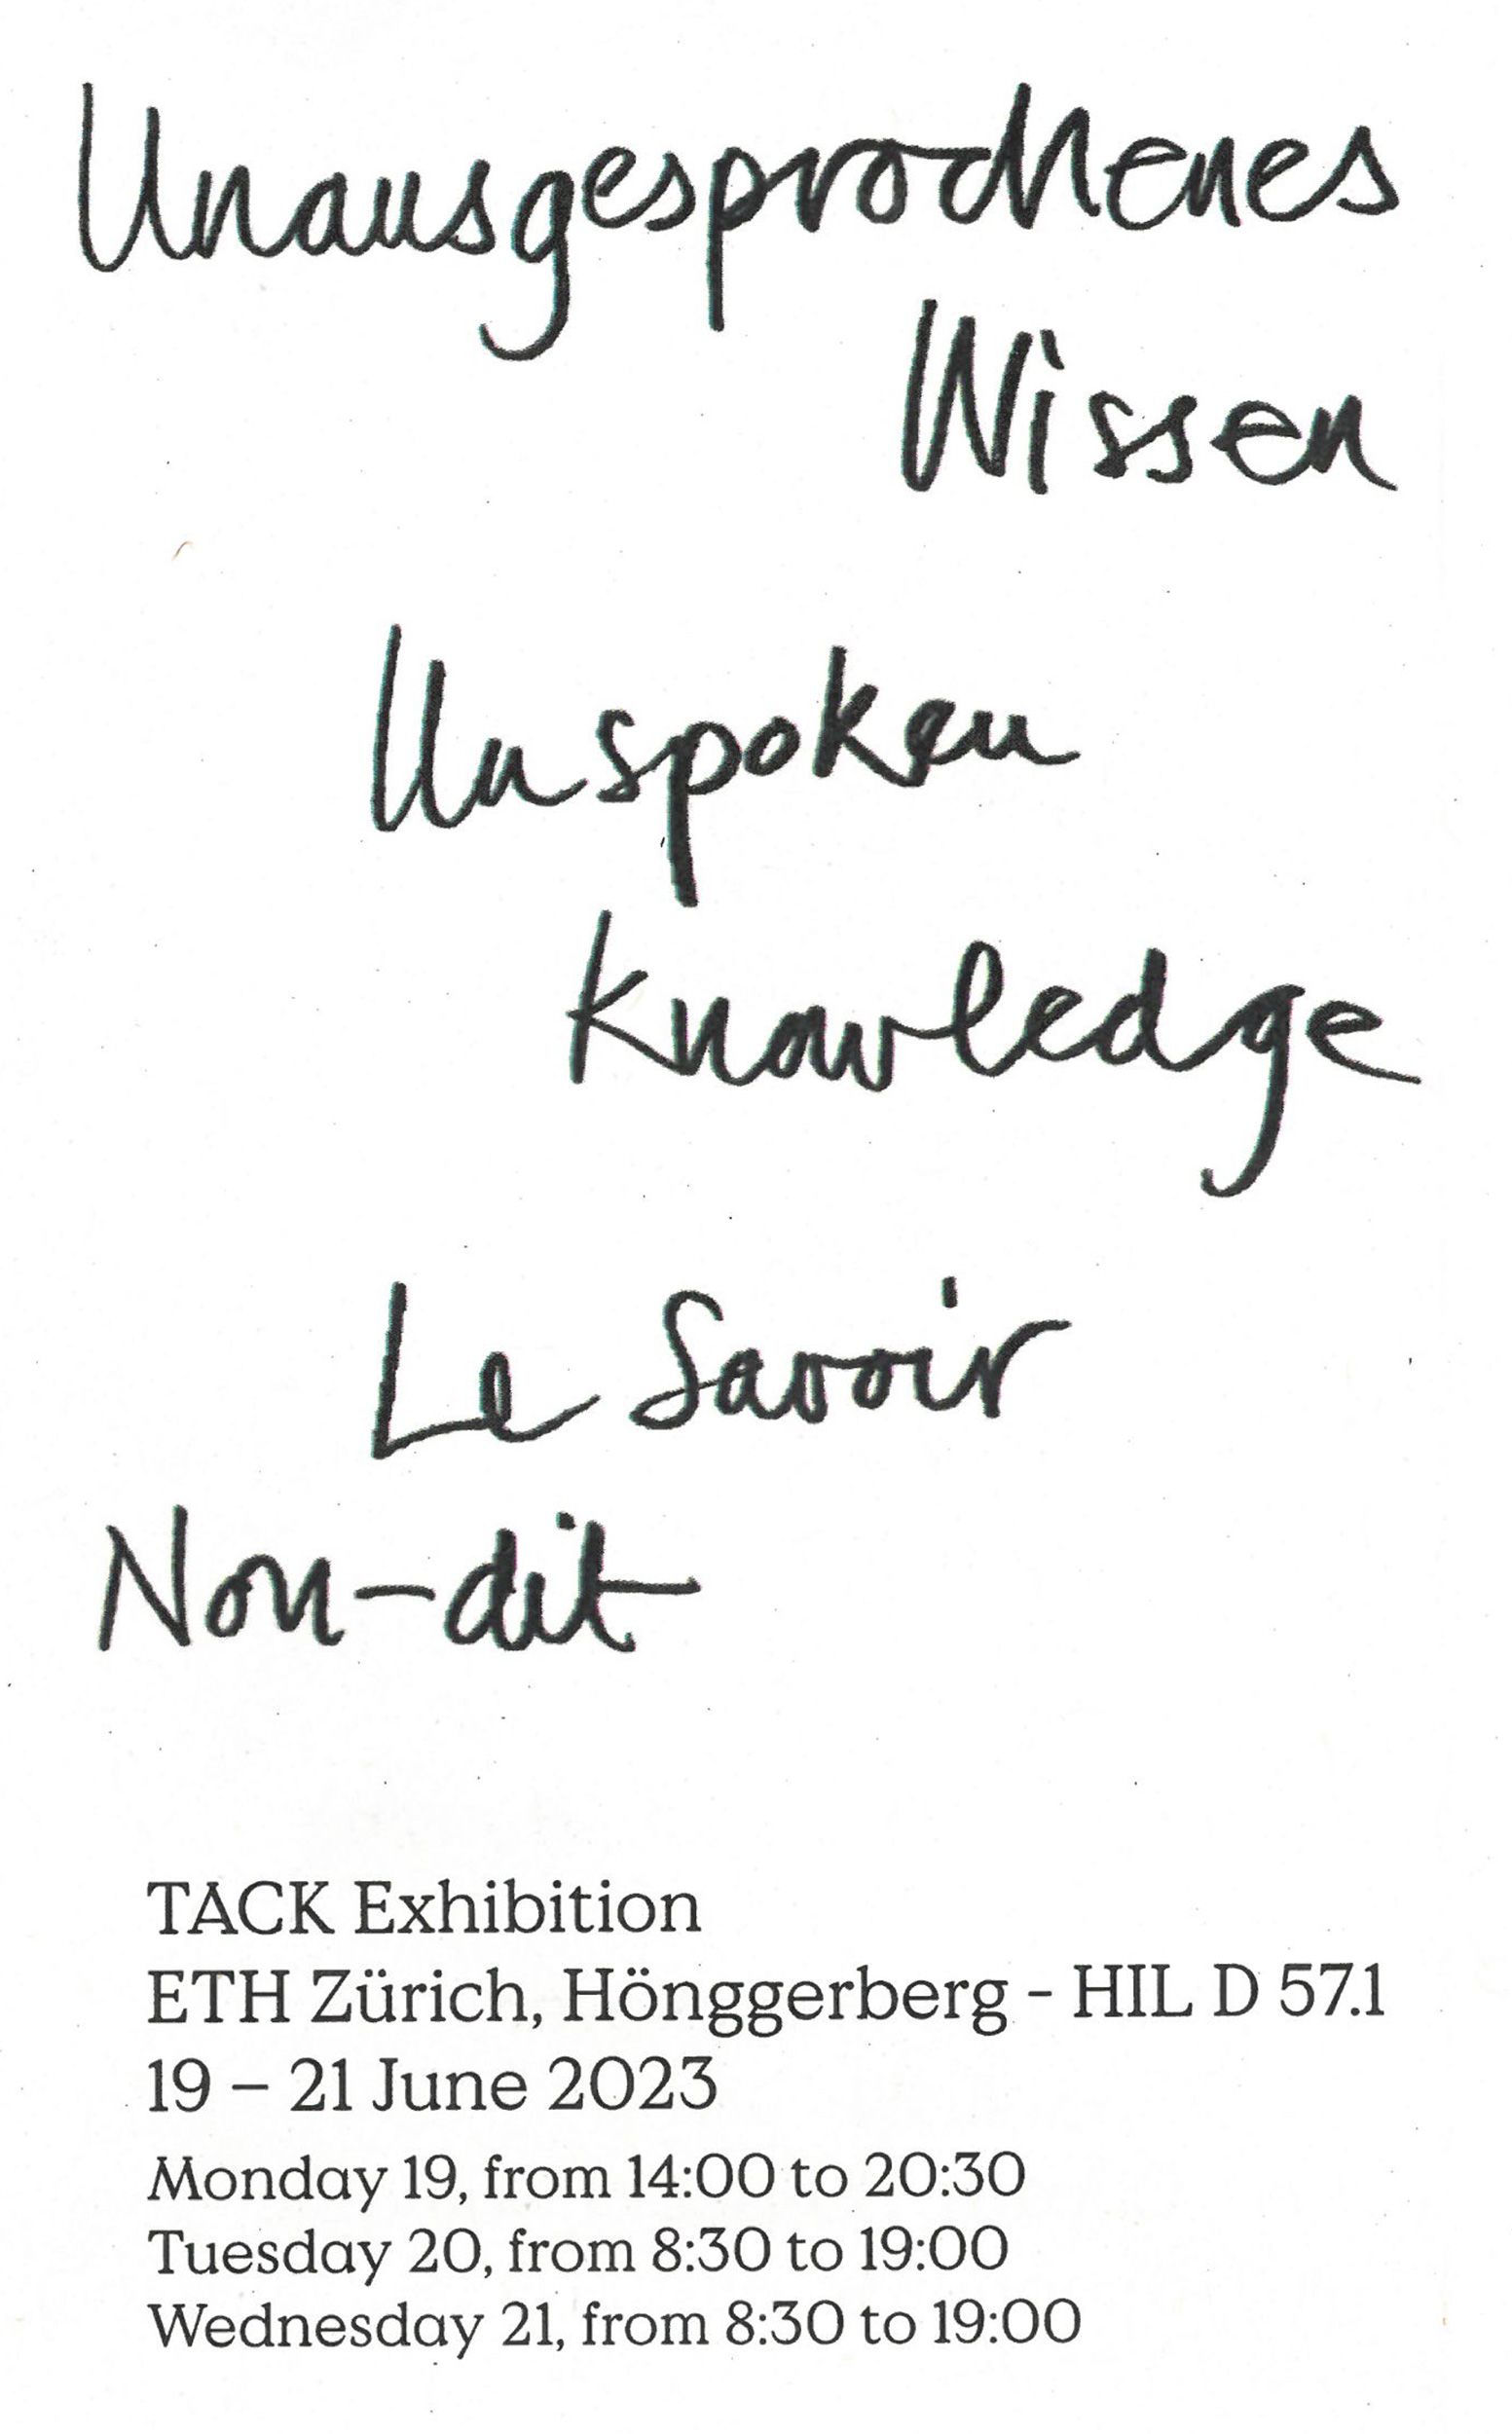 Unausgesprochenes
Wissen
Unspoken
Knowledge
Le Savoir
Non-dit
TACK Exhibition
ETH Zürich, Hönggerberg - HIL D 57.1
19 – 21 June 2023
Monday 19, from 14:00 to 20:30
Tuesday 20, from 8:30 to 19:00
Wednesday 21, from 8:30 to 19:00